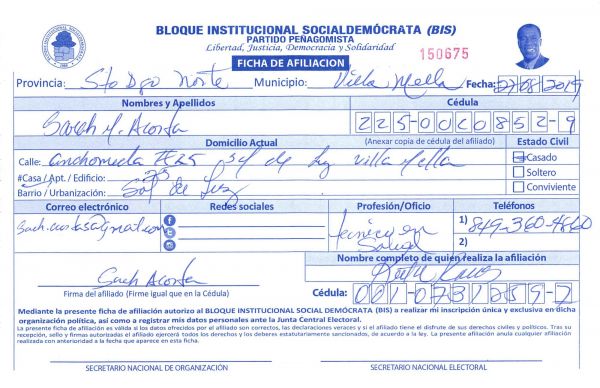 BLOQUE INSTITUCIONAL SOCIALDEMÓCRATA (BIS)
PARTIDO PEÑAGOMISTA
Libertad, Justicia, Democracia y Solidaridad
FICHA DE AFILIACION
150675
Provincia: Sto Dgo Norte Municipio: Villa Mella Fecha: 27/08/2015
Nombres y Apellidos Cédula
Sarah M. Acosta 225-0020852-9
Domicilio Actual (Anexar copia de cédula del afiliado) Estado Civil
Calle: #25 Sol de Luz Villa Mella
Casado
#Casa / Apt. / Edificio:
Soltero
Barrio / Urbanización: Sol de Luz
Conviviente
Correo electrónico Redes sociales Profesión/Oficio Teléfonos
@gmail.com
f
técnico en Salud
1) 849-360-4860
2)
Nombre completo de quien realiza la afiliación
Sarah Acosta
Firma del afiliado (Firme igual que en la Cédula)
Cédula: 001-0731259-2
Mediante la presente ficha de afiliación autorizo al BLOQUE INSTITUCIONAL SOCIAL DEMÓCRATA (BIS) a realizar mi inscripción única y exclusiva en dicha
organización política, así como a registrar mis datos personales ante la Junta Central Electoral.
La presente ficha de afiliación es válida si los datos ofrecidos por el afiliado son correctos, las declaraciones veraces y si el afiliado tiene el disfrute de sus derechos civiles y políticos. Tras su
recepción, sello y firmas autorizadas el afiliado ejercerá todos los derechos y los deberes estatutariamente sancionados, de acuerdo a la ley. La presente afiliación anula cualquier afiliación
realizada con anterioridad a la fecha que aparece en esta ficha.
SECRETARIO NACIONAL DE ORGANIZACIÓN SECRETARIO NACIONAL ELECTORAL